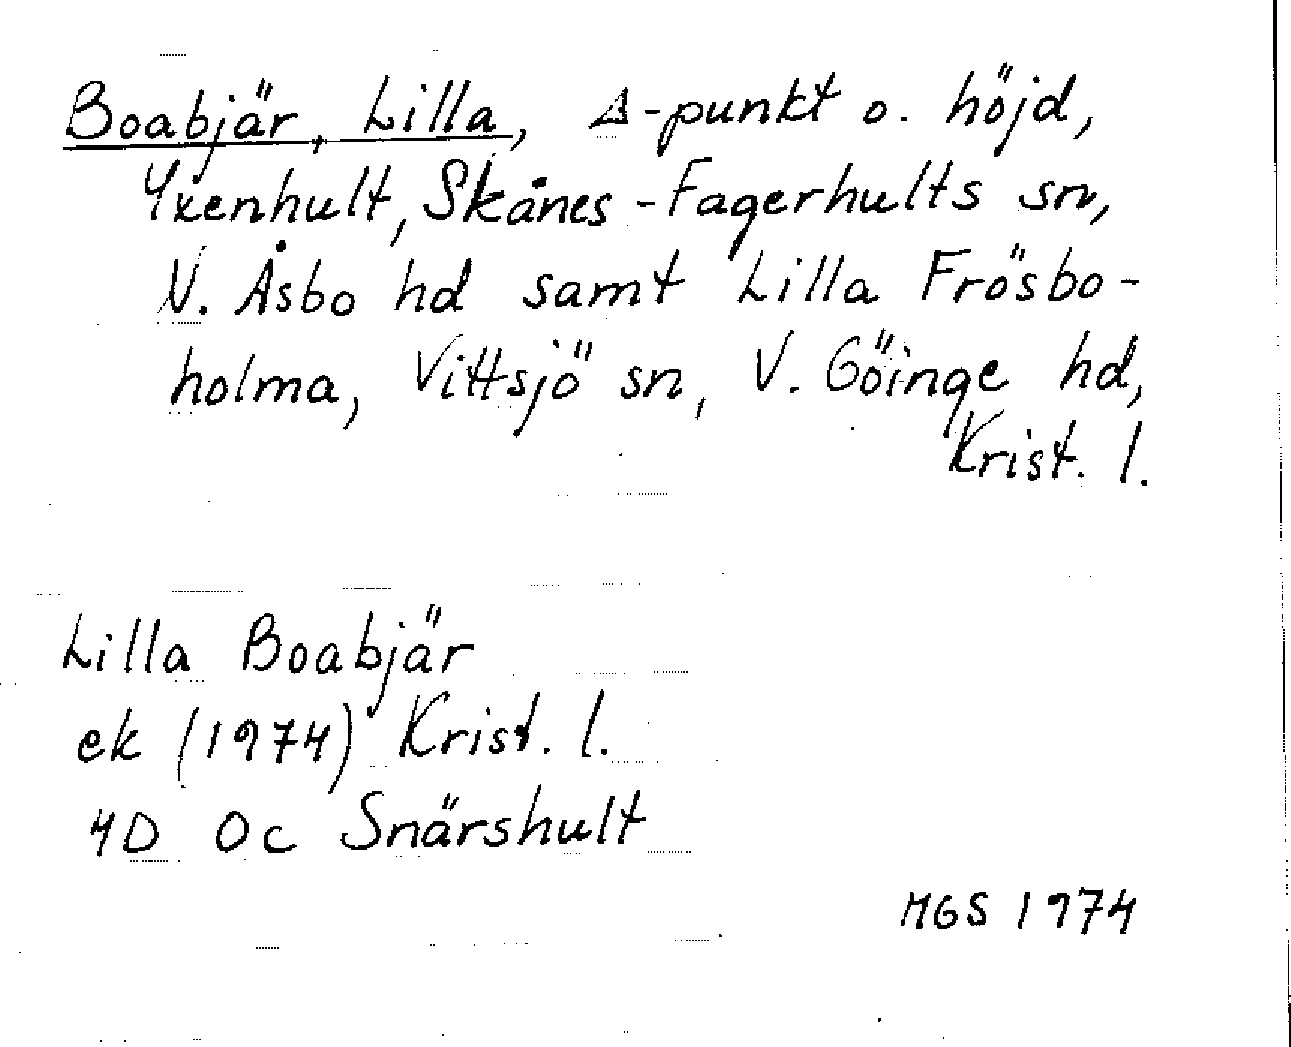 Boabjär, Lilla, Δ-punkt o. höjd,
Yxenhult, Skånes-Fagerhults sn,
N. Åsbo hd samt Lilla Frösbo-
holma, Vittsjö sn, V. Göinge hd,
Krist. l.
Lilla Boabjär
ek (1974) Krist. l.
4D 0c Snärshult
MGS 1974